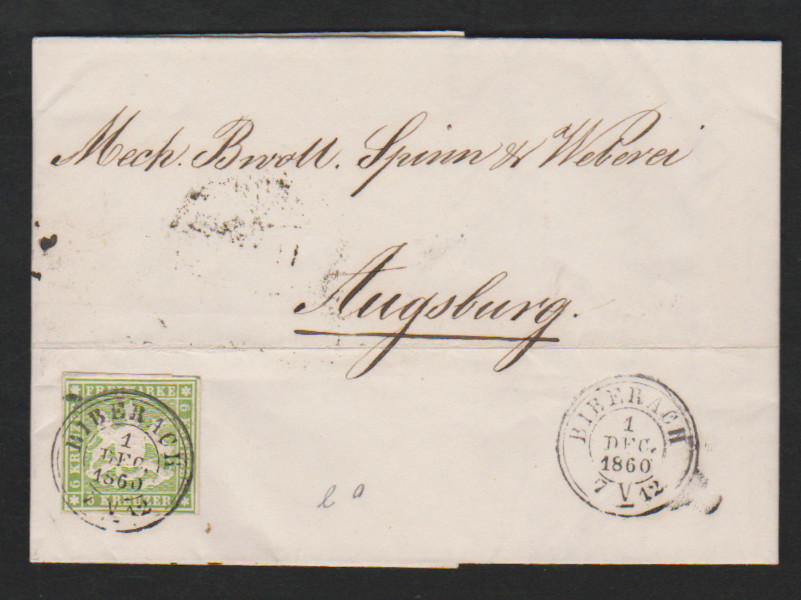 Mech. Bwoll. Spinn & Weberei
Augsburg.
FREIMARKE
6 KREUZER
BIBERACH
1
DEC.
1860
7 V 12
BIBERACH
1
DEC.
1860
7 V 12